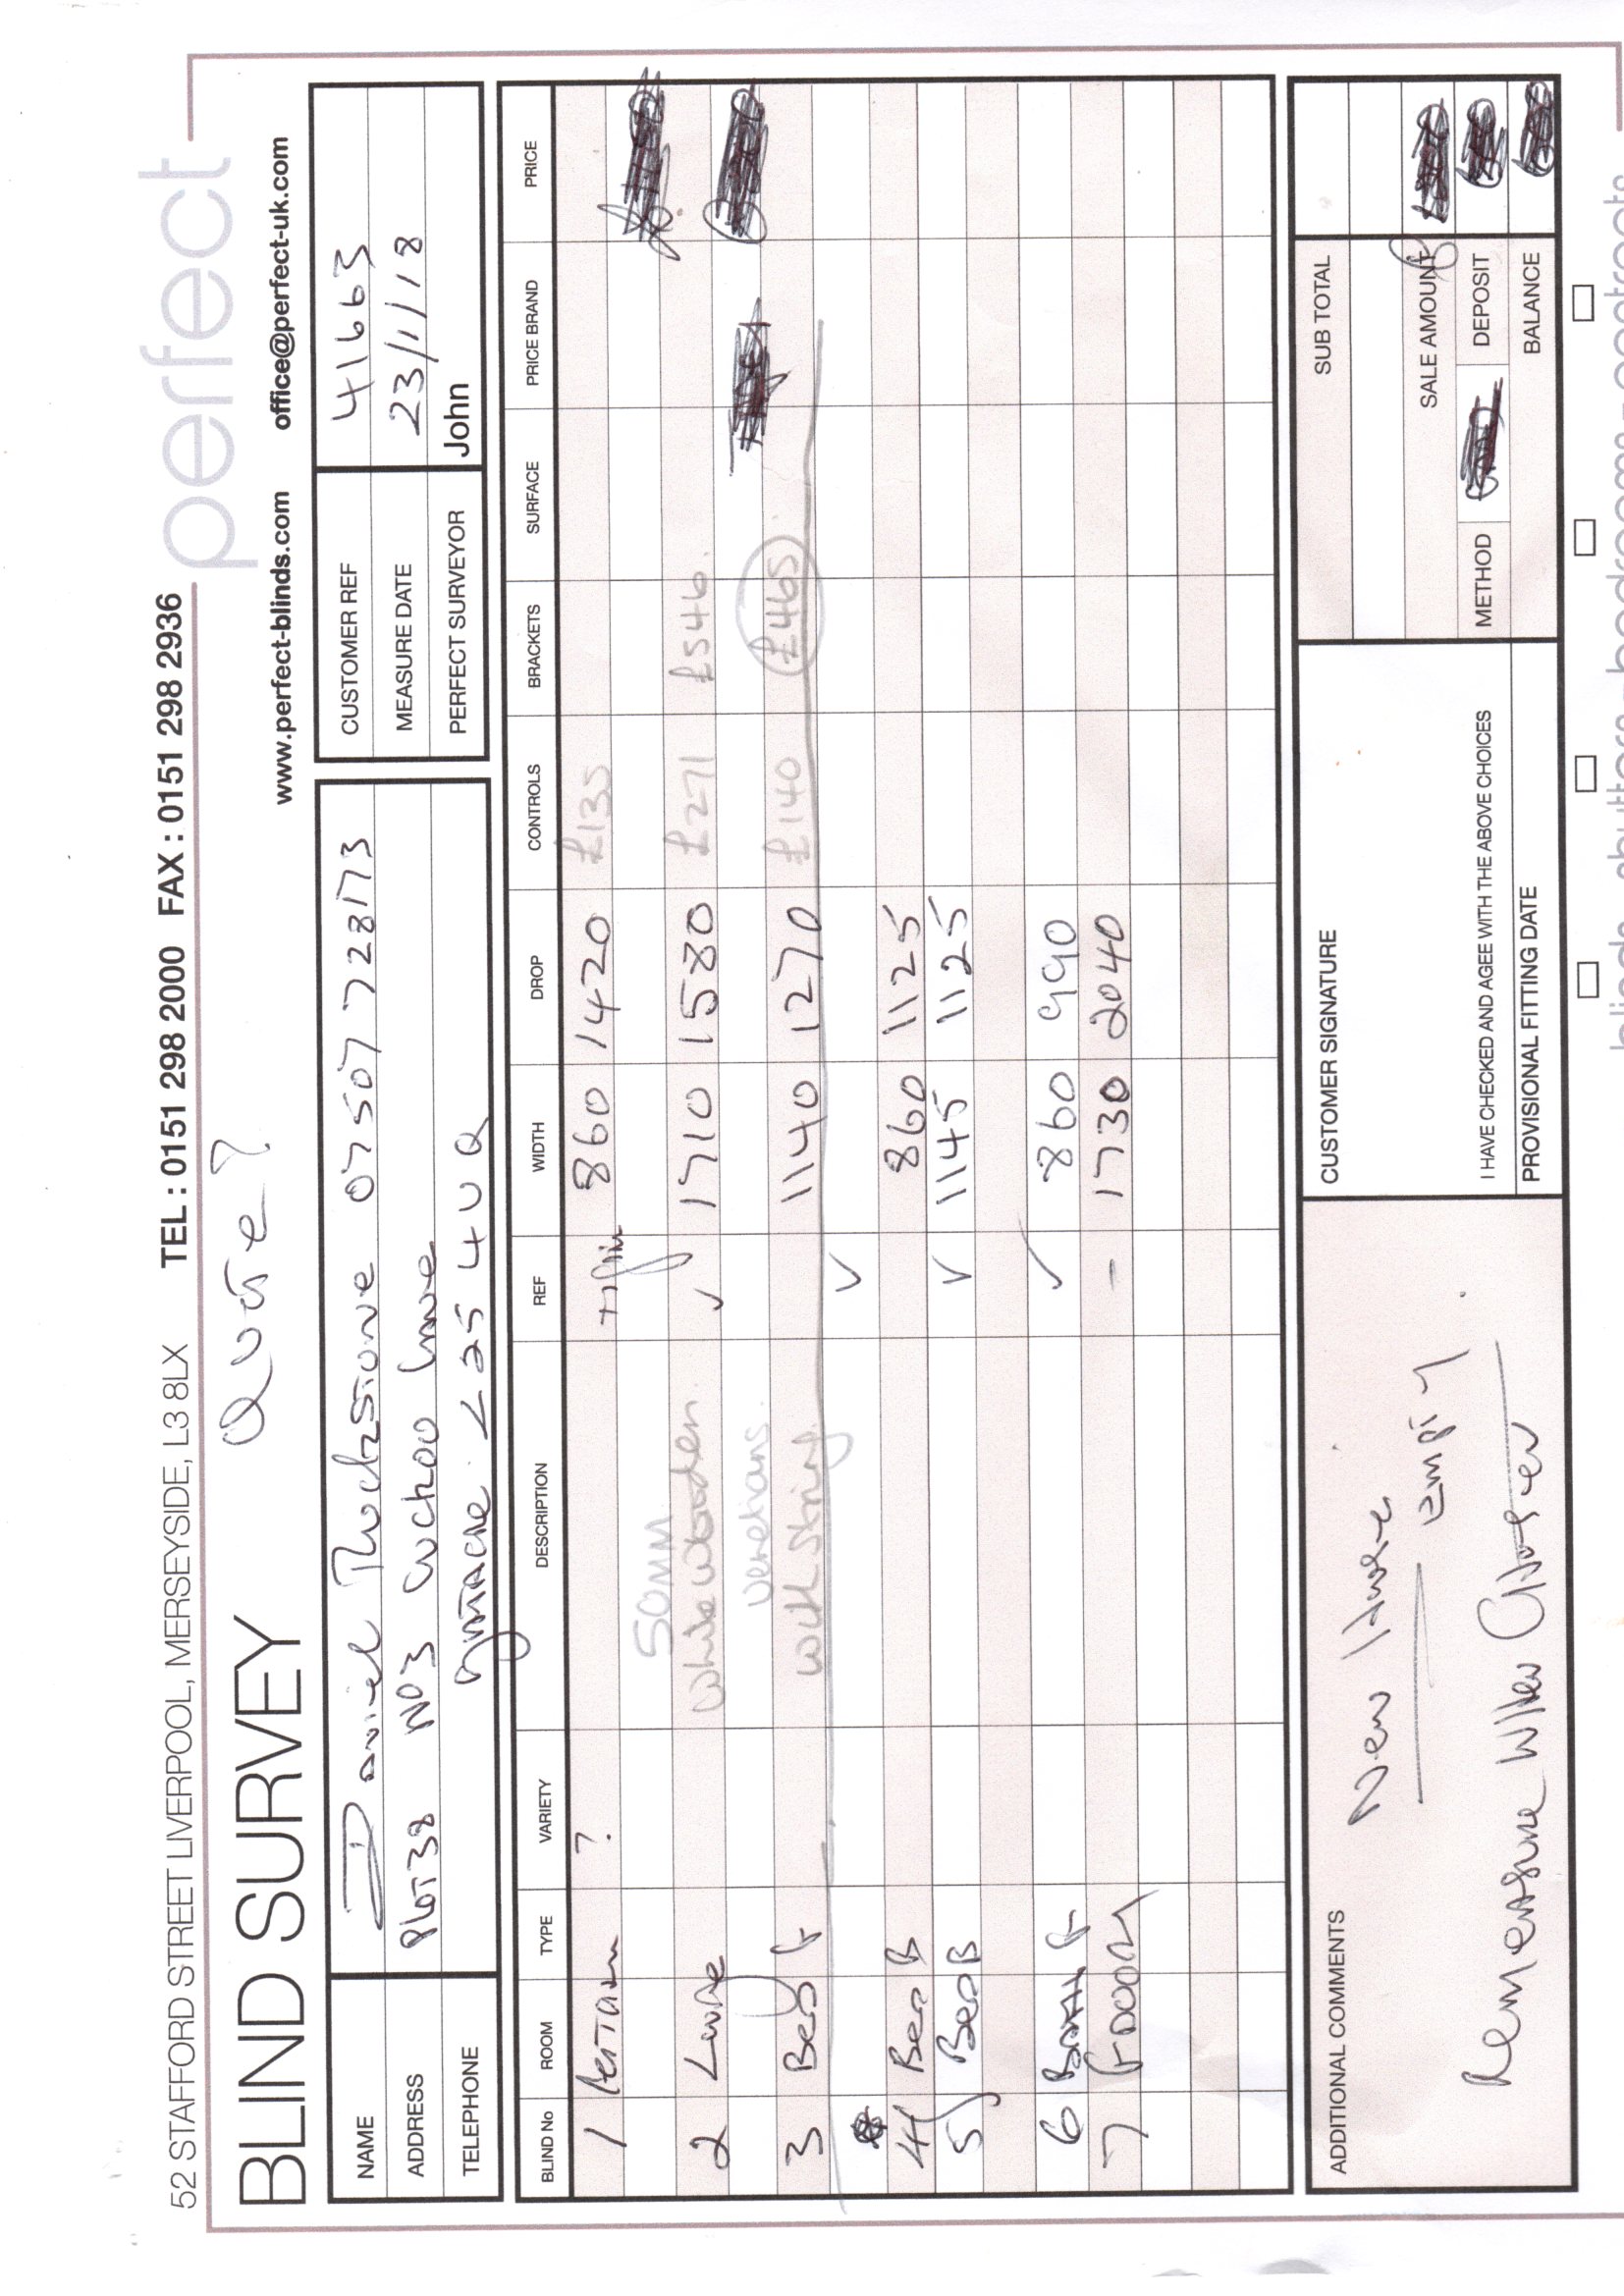 52 STAFFORD STREET LIVERPOOL, MERSEYSIDE, L3 8LX TEL : 0151 298 2000 FAX : 0151 298 2936
perfect
BLIND SURVEY Quote?
www.perfect-blinds.com office@perfect-uk.com
NAME Daniel 07507 728173
ADDRESS Plot 38 No 3 Cuckoo Lane
TELEPHONE L25 4UQ
CUSTOMER REF 41663
MEASURE DATE 23/1/18
PERFECT SURVEYOR John
BLIND No ROOM TYPE VARIETY DESCRIPTION REF WIDTH DROP CONTROLS BRACKETS SURFACE PRICE BRAND PRICE
1 ? 860 1420 £135
50MM
2 white wooden ✓ 1710 1580 £271 £546.
venetians
3 Bed F with string 1140 1270 £140 £465
✓
4 Bed B 860 1125
5 Bed B ✓ 1145 1125
6 Bath F ✓ 860 990
7 F DOOR - 1730 2040
ADDITIONAL COMMENTS
New House
Empty
Remeasure When
CUSTOMER SIGNATURE
I HAVE CHECKED AND AGEE WITH THE ABOVE CHOICES
PROVISIONAL FITTING DATE
SUB TOTAL
SALE AMOUNT
METHOD DEPOSIT
BALANCE